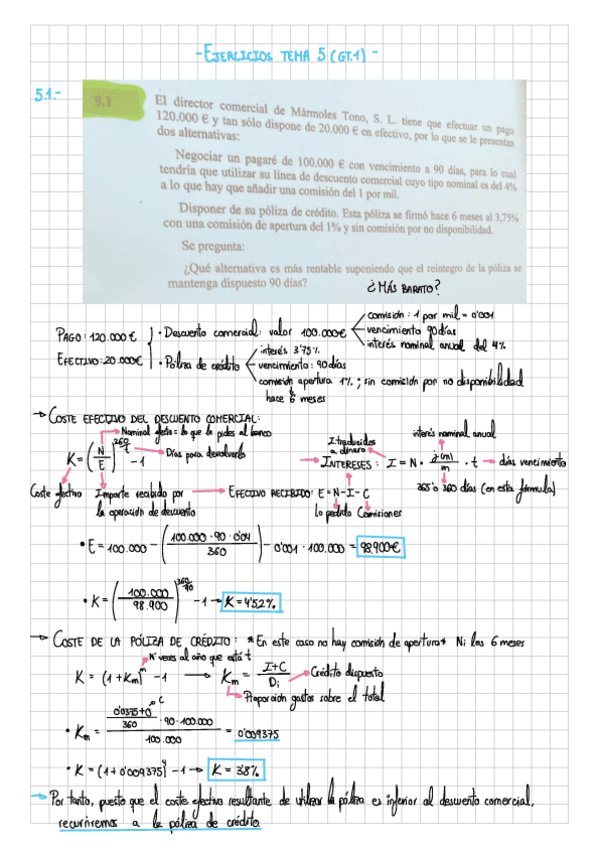 - EJERCICIOS TEMA 5 (GT.1) -
5.1.-
5.1
El director comercial de Mármoles Tono, S. L. tiene que efectuar un pago
120.000 € y tan sólo dispone de 20.000 € en efectivo, por lo que se le presentan
dos alternativas:
Negociar un pagaré de 100.000 € con vencimiento a 90 días, para lo cual
tendría que utilizar su línea de descuento comercial cuyo tipo nominal es del 4%
a lo que hay que añadir una comisión del 1 por mil.
Disponer de su póliza de crédito. Esta póliza se firmó hace 6 meses al 3,75%
con una comisión de apertura del 1% y sin comisión por no disponibilidad.
Se pregunta:
¿Qué alternativa es más rentable suponiendo que el reintegro de la póliza se
mantenga dispuesto 90 días?
¿MÁS BARATO?
PAGO: 120.000 €
EFECTIVO: 20.000€
• Descuento comercial: valor 100.000€
comisión: 1 por mil = 0'001
vencimiento 90 días
interés nominal anual del 4%
• Póliza de crédito
interés 3'75%
vencimiento: 90 días
comisión apertura 1%; sin comisión por no disponibilidad
hace 6 meses
→ COSTE EFECTIVO DEL DESCUENTO COMERCIAL:
Nominal efecto: lo que le pides al banco
K = (N/E)^360/t - 1
Días para devolverlo
Coste efectivo
Importe recibido por
la operación de descuento
EFECTIVO RECIBIDO: E = N - I - C
Lo pedido Comisiones
I traducidos
a dinero
INTERESES: I = N · j(m)/m · t
interés nominal anual
días vencimiento
365 o 360 días (en esta fórmula)
• E = 100.000 - (100.000 · 90 · 0'04 / 360) - 0'001 · 100.000 = 98.900€
• K = (100.000 / 98.900)^360/90 - 1 → K = 4'52%
→ COSTE DE LA PÓLIZA DE CRÉDITO: * En este caso no hay comisión de apertura * Ni los 6 meses
Nº veces al año que está t
K = (1 + Km)^m - 1 → Km = I + C / Di
Crédito dispuesto
Proporción gastos sobre el total
• Km = (0'0375 + 0 / 360 · 90 · 100.000) / 100.000 = 0'009375
C
• K = (1 + 0'009375)^4 - 1 → K = 3'8%
→ Por tanto, puesto que el coste efectivo resultante de utilizar la póliza es inferior al descuento comercial,
recurriremos a la póliza de crédito.